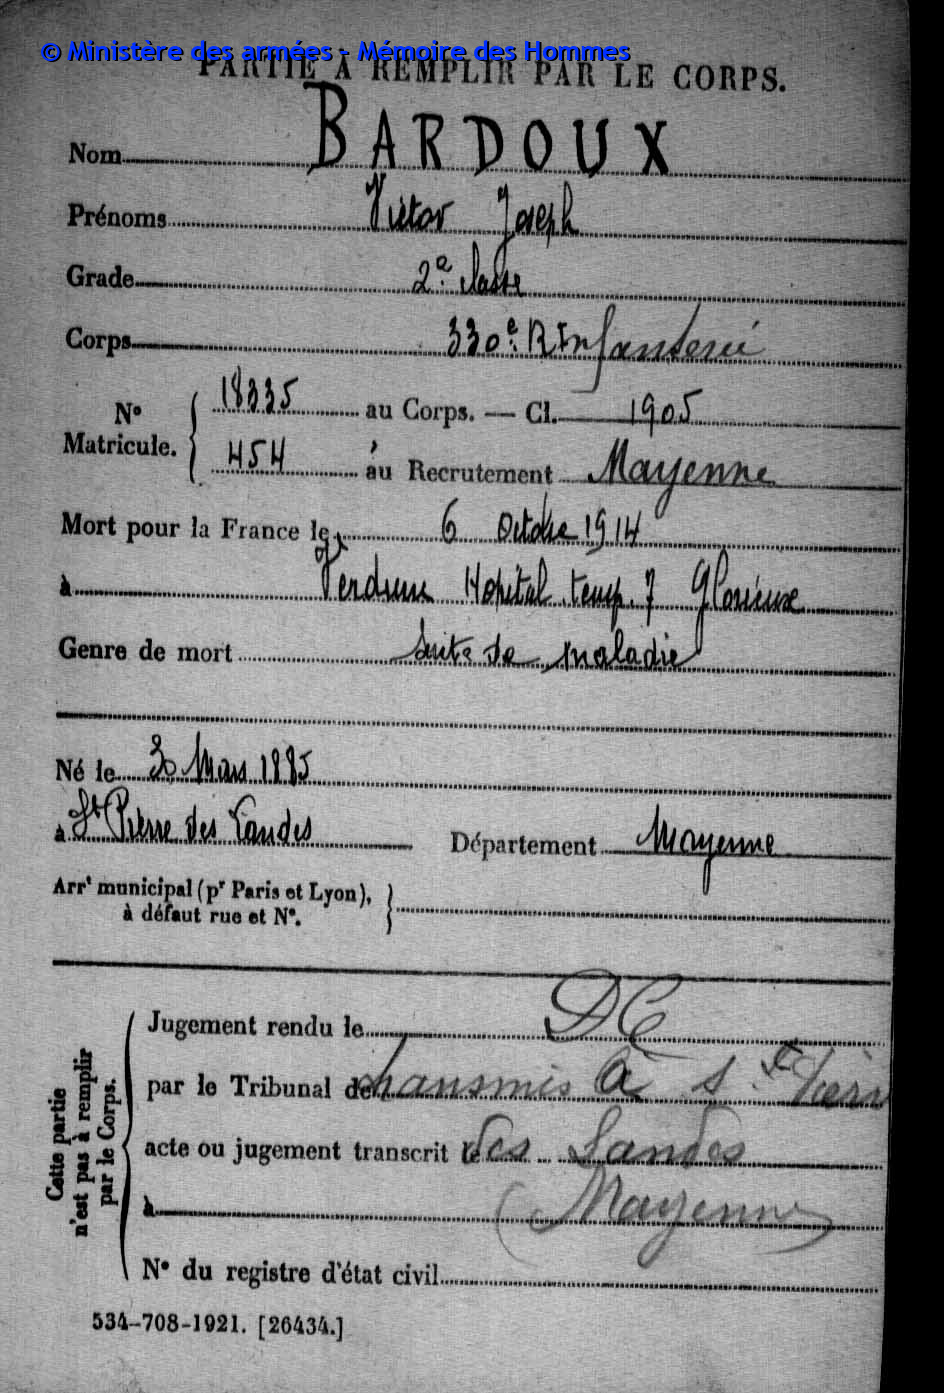 © Ministère des armées - Mémoire des Hommes
PARTIE À REMPLIR PAR LE CORPS.
Nom BARDOUX
Prénoms Victor Joseph
Grade 2e classe
Corps 330e R Infanterie
N° Matricule. 18335 au Corps. — Cl. 1905
454 au Recrutement Mayenne
Mort pour la France le 6 Octobre 1914
à Verdun Hopital temp. 7 Glorieux
Genre de mort Suite de maladie
Né le 30 Mars 1885
à St Pierre des Landes Département Mayenne
Arrt municipal (pr Paris et Lyon),
à défaut rue et N°.
Cette partie n'est pas à remplir par le Corps.
Jugement rendu le DC
par le Tribunal de transmis à St Pierre
acte ou jugement transcrit le des Landes
à (Mayenne)
N° du registre d'état civil
534-708-1921. [26434.]